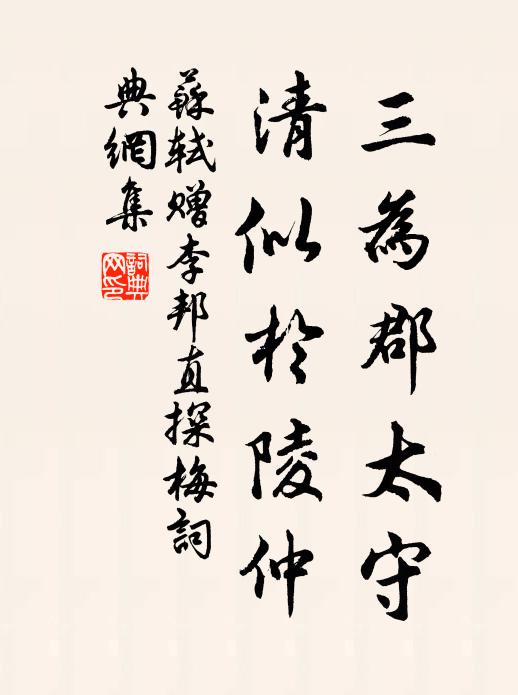 三為郡太守
清似於陵仲
蘇軾贈李邦直探梅詞
典網集
詞典
网印